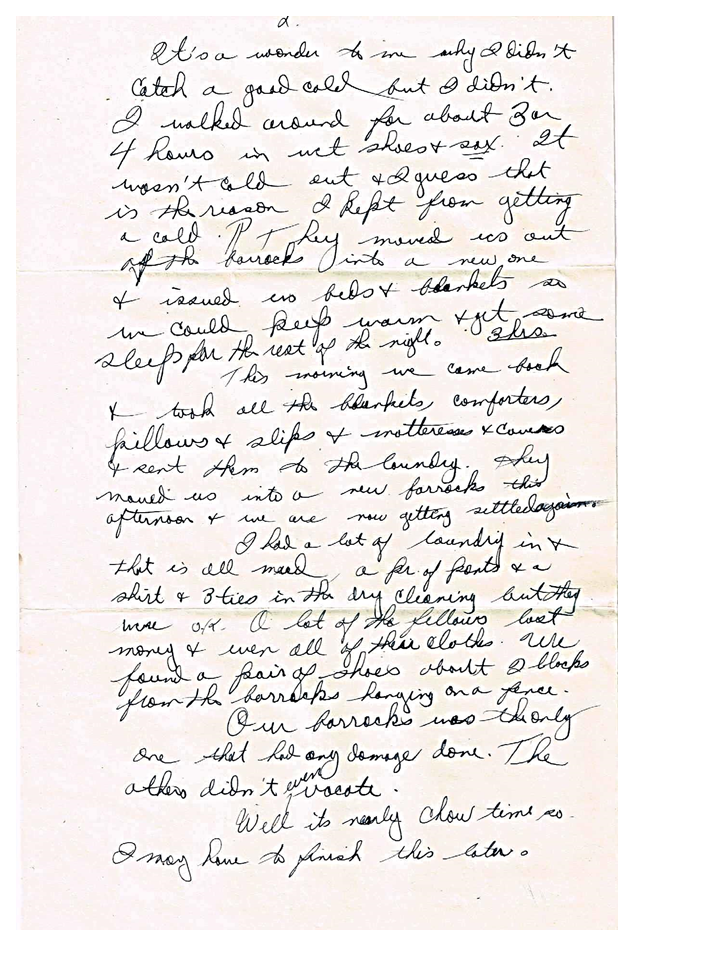 2.
It's a wonder to me why I didn't
catch a good cold but I didn't.
I walked around for about 3 or
4 hours in wet shoes & sox. It
wasn't cold out & I guess that
is the reason I kept from getting
a cold. ¶ They moved us out
of the barrocks into a new one
& issued us beds & blankets so
we could keep warm & get some
sleep for the rest of the night. 3 hrs
This morning we came back
& took all the blankets, comforters,
pillows & slips & mattresses & covers
& sent them to the laundry. They
moved us into a new barrocks this
afternoon & we are now getting settled again.
I had a lot of laundry in &
that is all a pr. of pants & a
shirt & 3 ties in the dry cleaning but they
were o.k. A lot of the fellows lost
money & even all of their cloths. We
found a pair of shoes about 2 blocks
from the barrocks hanging on a fence.
Our barrocks was the only
one that had any damage done. The
others didn't even vacate.
Well its nearly chow time so
I may have to finish this later.